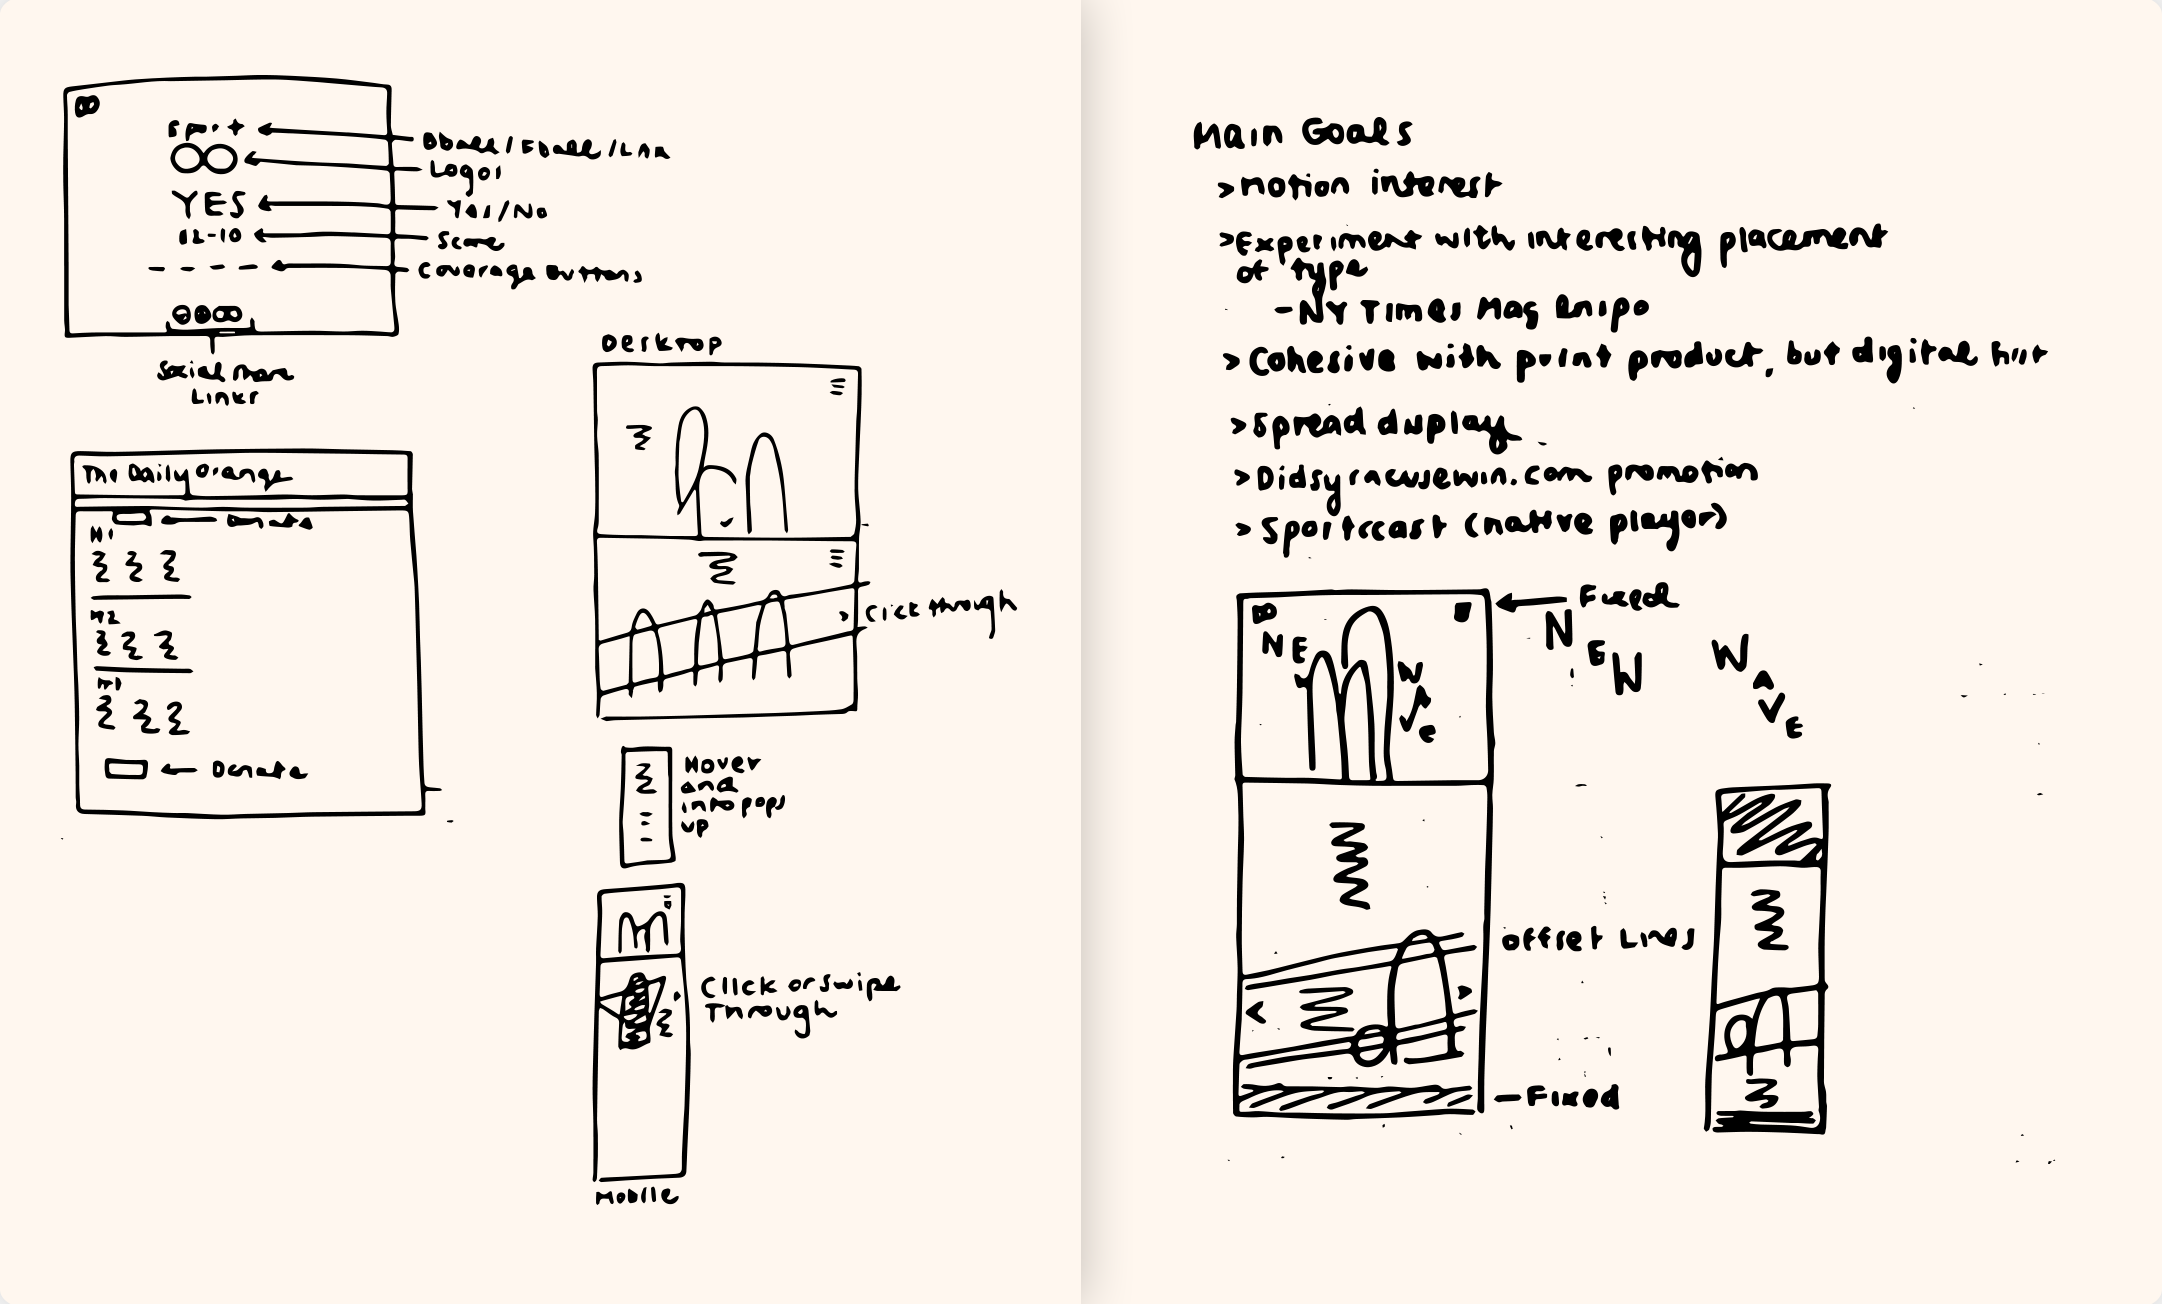 Sport
Bball/Fball/LAX
Logos
YES
Yes/No
12-10
Score
Coverage Buttons
Social Media
Links
The Daily Orange
Donate
H1
H2
Donate
Desktop
Click through
Hover
and
info pops
up
Click or swipe
Through
Mobile
Main Goals
> Motion interest
> Experiment with interesting placement
of type
- NY Times Mag Inspo
> Cohesive with print product, but digital first
> Spread display
> Didsyracusewin.com promotion
> Sportscast (native player)
DO
NEW
WAVE
Fixed
NEW WAVE
Offset Lines
- Fixed